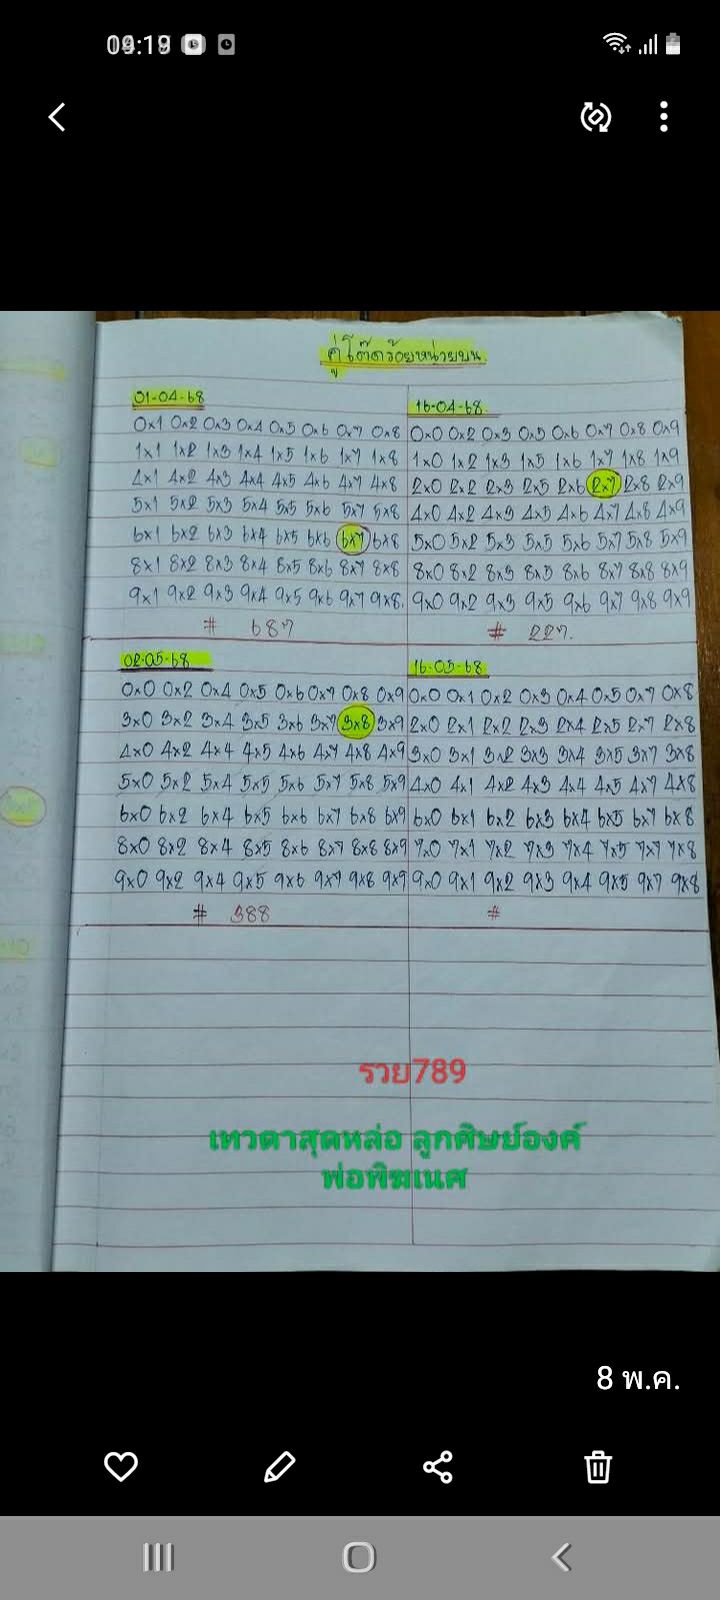 09:19
คู่โต๊ดร้อยหน่วยบน
01-04-68
0x1 0x2 0x3 0x4 0x5 0x6 0x7 0x8
1x1 1x2 1x3 1x4 1x5 1x6 1x7 1x8
4x1 4x2 4x3 4x4 4x5 4x6 4x7 4x8
5x1 5x2 5x3 5x4 5x5 5x6 5x7 5x8
6x1 6x2 6x3 6x4 6x5 6x6 6x7 6x8
8x1 8x2 8x3 8x4 8x5 8x6 8x7 8x8
9x1 9x2 9x3 9x4 9x5 9x6 9x7 9x8.
# 687
16-04-68.
0x0 0x2 0x3 0x5 0x6 0x7 0x8 0x9
1x0 1x2 1x3 1x5 1x6 1x7 1x8 1x9
2x0 2x2 2x3 2x5 2x6 2x7 2x8 2x9
4x0 4x2 4x3 4x5 4x6 4x7 4x8 4x9
5x0 5x2 5x3 5x5 5x6 5x7 5x8 5x9
8x0 8x2 8x3 8x5 8x6 8x7 8x8 8x9
9x0 9x2 9x3 9x5 9x6 9x7 9x8 9x9
# 227.
02-05-68
0x0 0x2 0x4 0x5 0x6 0x7 0x8 0x9
3x0 3x2 3x4 3x5 3x6 3x7 3x8 3x9
4x0 4x2 4x4 4x5 4x6 4x7 4x8 4x9
5x0 5x2 5x4 5x5 5x6 5x7 5x8 5x9
6x0 6x2 6x4 6x5 6x6 6x7 6x8 6x9
8x0 8x2 8x4 8x5 8x6 8x7 8x8 8x9
9x0 9x2 9x4 9x5 9x6 9x7 9x8 9x9
# 388
16-05-68
0x0 0x1 0x2 0x3 0x4 0x5 0x7 0x8
2x0 2x1 2x2 2x3 2x4 2x5 2x7 2x8
3x0 3x1 3x2 3x3 3x4 3x5 3x7 3x8
4x0 4x1 4x2 4x3 4x4 4x5 4x7 4x8
6x0 6x1 6x2 6x3 6x4 6x5 6x7 6x8
7x0 7x1 7x2 7x3 7x4 7x5 7x7 7x8
9x0 9x1 9x2 9x3 9x4 9x5 9x7 9x8
#
รวย789
เทวดาสุดหล่อ ลูกศิษย์องค์
พ่อพิฆเนศ
8 พ.ค.